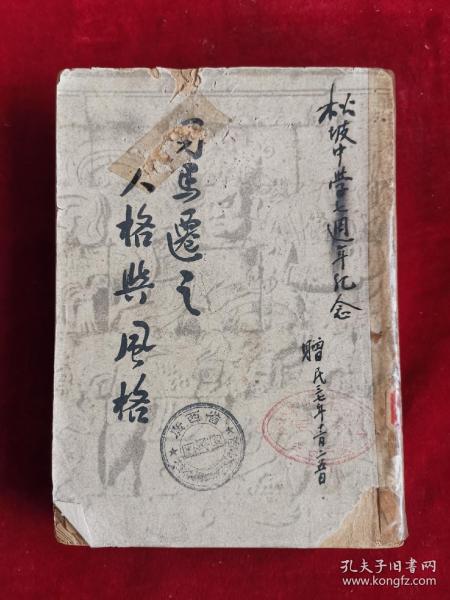 松坡中学之週年紀念
贈 民三七年十二月二五日
司馬遷之
人格與風格
廣西省
孔夫子旧书网
www.kongfz.com